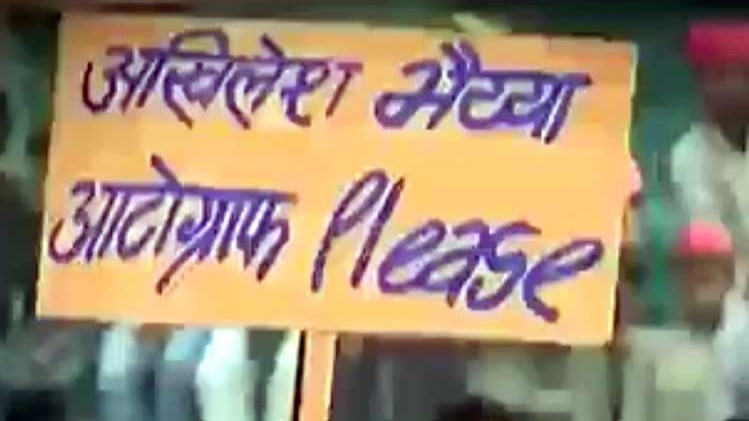 अखिलेश भैय्या
आटोग्राफ Please